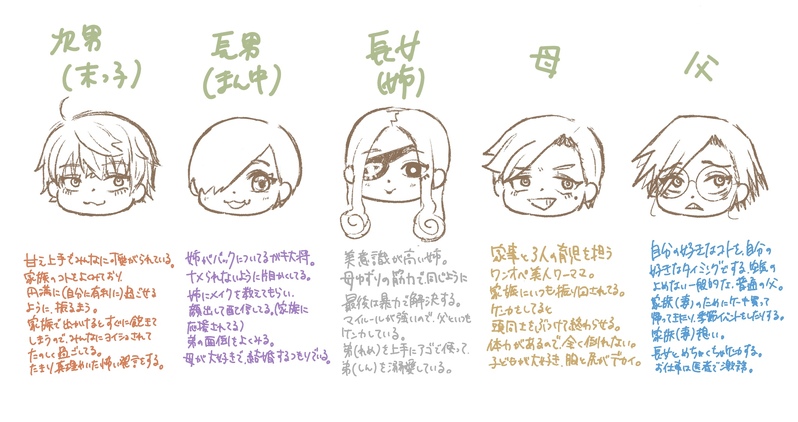 次男
(末っ子)
甘え上手でみんなに可愛がられている。
家族のコトをよく見ており
円満に(自分に有利に)過ごせる
ように、振るまう。
家族で出かけるとすぐに飽きて
しまうので、みんなにヨイショされて
たのしく過ごしてる。
たまに真理めいた怖い発言をする。
長男
(まん中)
姉がバックについてるガキ大将。
ナメられないように片目かくしてる。
姉にメイクを教えてもらい、
顔出しで配信してる。(家族に
応援されてる)
弟の面倒をよくみる。
母が大好きで、結婚するつもりでいる。
長女
(姉)
美意識が高い姉。
母ゆずりの筋力で、同じように
最後は暴力で解決する。
マイルールが強いので、父といつも
ケンカしている。
弟(れお)を上手にアゴで使って、
弟(しん)を溺愛している。
母
家事と3人の育児を担う
ワンオペ美人ワーママ。
家族にいつも振り回されてる。
ケンカもしてると
頭同士をぶつけて終わらせる。
体力があるので、全く倒れない。
子ども3人が大好き、胸と尻がデカイ。
父
自分の好きなコトを、自分の
好きなタイミングでする、空気の
よめない一般的な、普通の父。
家族(妻)のためにケーキ買って
帰ってきたり、季節イベントをしたりする。
家族(妻)想い。
長女とめちゃくちゃケンカする。
お仕事は医者で激務。